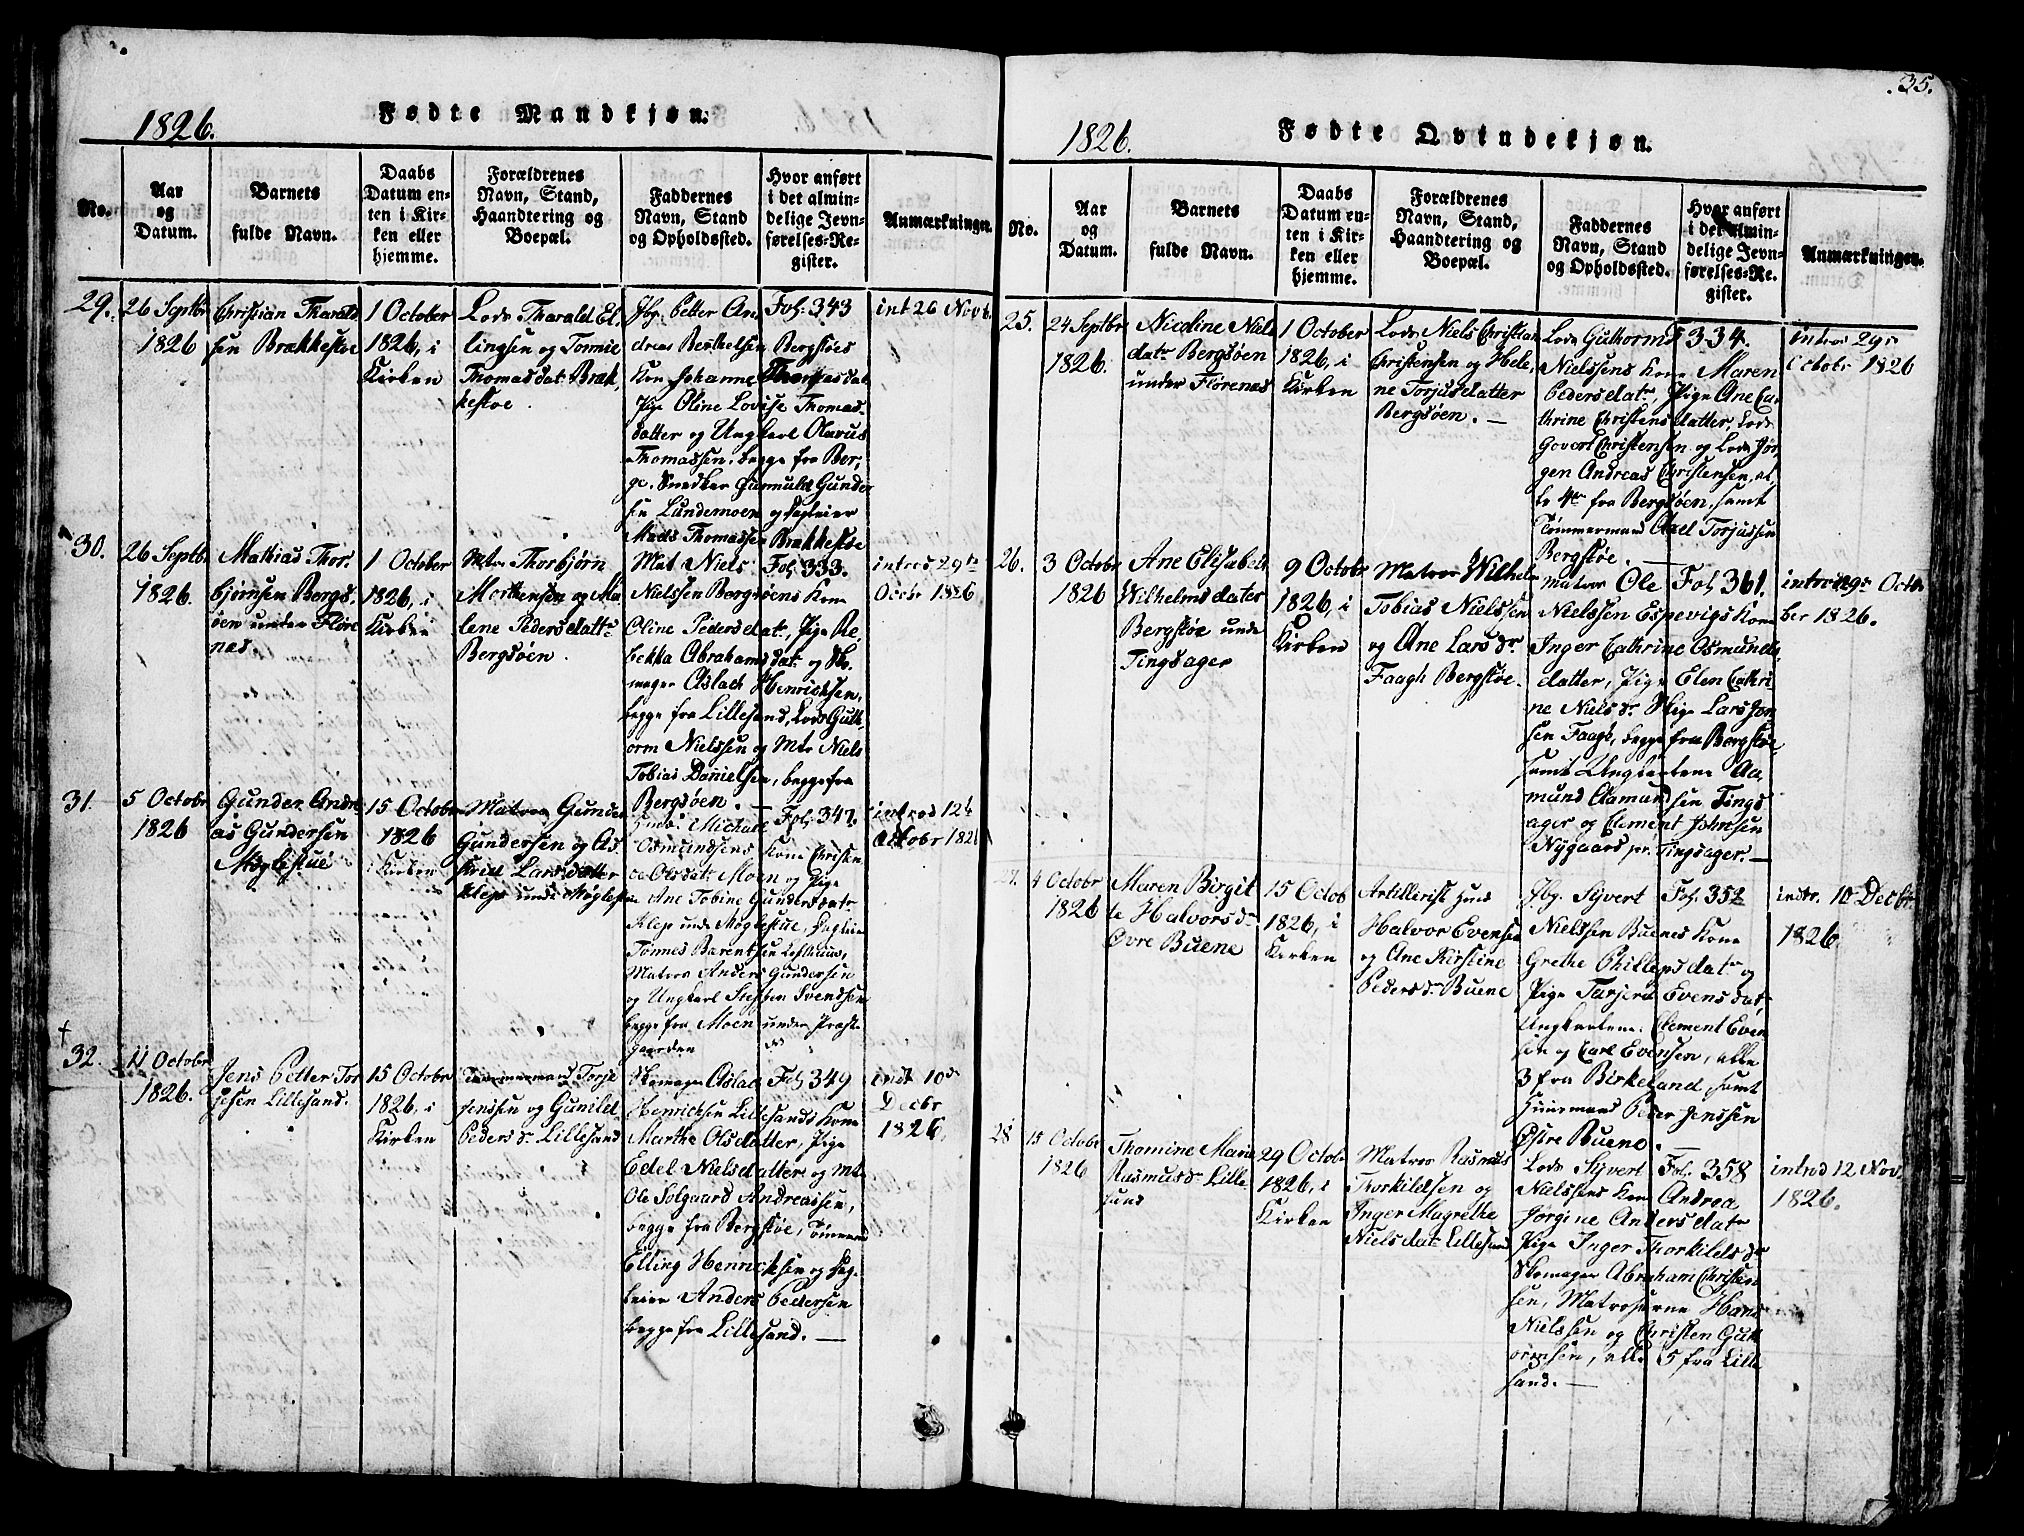 35.
1826.
Fødte Mandkjøn.
No.
Aar
og
Datum.
Barnets
fulde Navn.
Daabs
Datum en-
ten i Kir-
ken eller
hjemme.
Forældrenes
Navn, Stand,
Haandtering og
Boepæl.
Faddernes
Navn, Stand
og Opholdssted.
Hvor anført
i det almin-
delige Jevn-
førelses-Re-
gister.
Anmærkninger.
29.
26 Septbr
1826
Christian Tharald
sen Brækkestøe
1 October
1826, i
Kirken
Lods Tharald El
lingsen og Tonnie
Thomasdat Bræk
kestøe
Jbg. Petter An
dreas Berthelsen Bergstøes
Kon Johanne Thomasdat
Pige Oline Lovise Thomas
datter og Ungkarl Olavus
Thomassen, begge fra Ber,
ge. Snedker Gunnuld Gunder
sen Lundemoen og Sagleier
Mads Thomassen Brækkestøe
Fol. 343
int 26 Novb.
30.
26 Septbr
1826.
Mathias Thor
bjørnsen Bergs,
øen under Fløre
næs
1 October
1826, i
Kirken
Mtr. Thorbjørn
Mortensen og Ma
lene Pedersdattr
Bergsøen.
Mat Niels
Nielssen Bergsøens Kone
Oline Pedersdatr, Pige Re
bekka Abrahamsdatr og Sko
mager Aslach Henrichsen,
begge fra Lillesand, Lods Guth
orm Nielssen og Mtr Niels
Tobias Danielsen, begge fra
Bergsøen. —
Fol 333.
introd 29de
Octbr 1826
31.
5 Octobr
1826
Gunder Andre
as Gundersen
Møglestue
15 October
1826
i Kirken
Matros Gunder
Gundersen og As
krid Larsdatter
Klep under Møglestue
Huusm. Michael
Osmundsens Kone Christen
ce Olsdatr Moen og Pige
Ane Tobine Gundersdatr
Klep under Møglestue, Sagleier
Tønnes Barentsen Lofthuus,
Matros Anders Gundersen
og Ungkarl Steffen Svendsen
begge fra Moen under Præste
gaarden
Fol. 347.
introd 12te
Octobr 1826
32.
11 Octobr
1826.
Jens Petter Tor
jesen Lillesand.
15 Octobr
1826, i
Kirken
Tømmermand Torje
Jenssen og Gunild
Pedersdr Lillesand
Skomager Aslach
Henrichsen Lillesands Kone
Marthe Olsdatter, Pige
Edel Nielsdatter og Mt
Ole Solgaard Andreassen,
begge fra Bergstøe, Tømmermand
Elling Henrichsen og Sag
leier Anders Pedersen
begge fra Lillesand. —
Fol 349
int 10de
Decbr
1826.
1826.
Fødte Qvindekjøn.
No.
Aar
og
Datum.
Barnets
fulde Navn.
Daabs
Datum en-
ten i Kir-
ken eller
hjemme.
Forældrenes
Navn, Stand,
Haandtering og
Boepæl.
Faddernes
Navn, Stand
og Opholdssted.
Hvor anført
i det almin-
delige Jevn-
førelses-Re-
gister.
Anmærkninger.
25.
24 Septbr
1826.
Nicoline Niels
datr Bergsøen
under Flørenæs
1 October
1826, i
Kirken
Lods Niels Christian
Christensen og Hele,
ne Torjusdatter
Bergsøen. —
Lods Guthorm
Nielssens Kone Maren
Pedersdatr, Pige Ane Ca
thrine Christensdatter, Lods
Govert Christensen og Lods Jør
gen Andreas Christensen, al,
le 4re fra Bergsøen, samt
Tømmermand Axel Torjussen
Bergstøe —
F 334.
introd 29de
Octobr 1826
26.
3 Octobr
1826
Ane Elisabeth
Wilhelmsdater
Bergstøe under
Tingsager
9 Octobr
1826, i
Kirken
Matros Wilhelm
Tobias Nielssen
og Ane Larsdr
Faagh Bergstøe.
Matros Ole
Nielssen Espevigs Kone
Inger Cathrine Osmunds,
datter, Pige Elen Cathri
ne Nielsdr Pige Lars Jon
sen Faagh, begge fra Bergstøe
samt Ungkarlene Aa,
mund Aamundsen Tings
ager og Clement Johnsen
Nygaard pr. Tingsager. —
Fol 361.
introd 29de Octo
ber 1826.
27.
4 Octobr
1826
Maren Birgit
te Halvorsdr
Øvre Buene
15 Octob
1826, i
Kirken
Artillerist Huusm
Halvor Evensen
og Ane Kirstine
Pedersdr Buene
Jbg. Syvert
Nielssen Buenes Kone
Grethe Phillipsdatr og
Pige Tarjerd Evensdatr
Ungkarlene Clement Even
sen og Carl Evensen, alle
3 fra Birkeland, samt
Huusmand Peder Jenssen
Østre Buene. —
Fol. 352
intr. 10 Decbr
1826.
28
15 Octobr
1826
Thomine Marie
Rasmusdr Lille
sand
29 Octobr
1826, i
Kirken
Matros Rasmus
Thorkildsen og
Inger Magrethe
Nielsdatr Lillesand
Lods Syvert
Nielssens Kone Andrea
Jørgine Andersdatr
Pige Inger Thorkildsdr
Skomager Abraham Christen
sen, Matroserne Hans
Nielssen og Christen Gutt
ormsen, alle 5 fra Lille
sand. —
Fol. 358
introd 12 Nov.
1826.